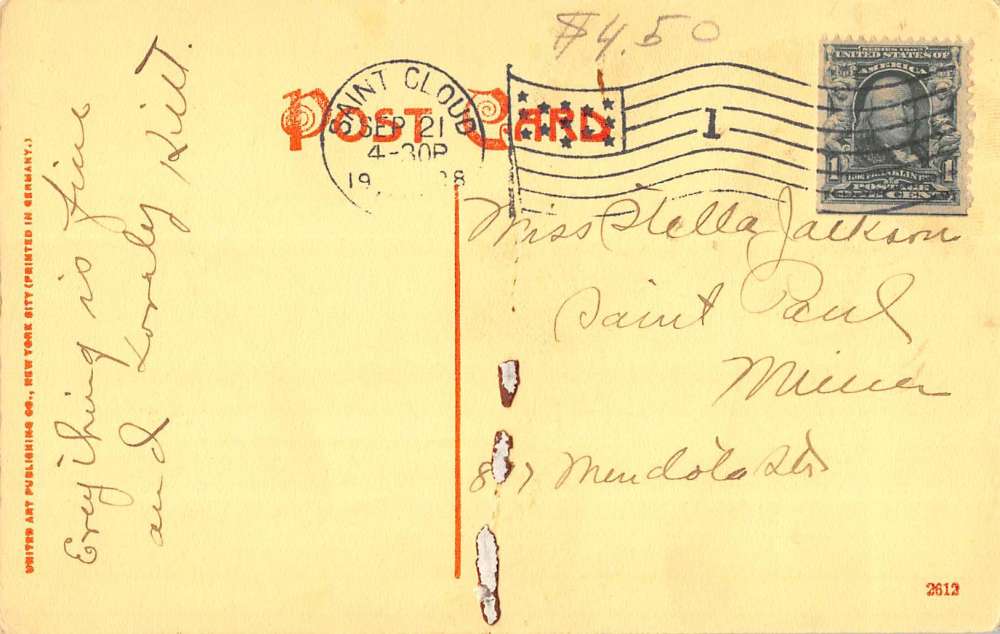 $4.50
POST CARD
SAINT CLOUD
SEP 21
4-30P
19 8
1
SERIES 1902
UNITED STATES OF
AMERICA
1 FRANKLIN 1
POSTAGE
ONE CENT
Miss Stella Jackson
Saint Paul
Minn
8 7 Mendota St
Everything is fine
and Lovely
UNITED ART PUBLISHING CO., NEW YORK CITY (PRINTED IN GERMANY.)
2612